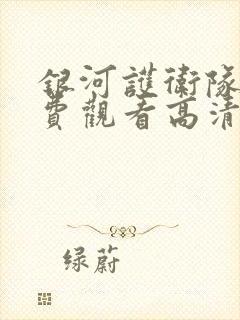 銀河護衛隊
費觀看高清
绿蔚